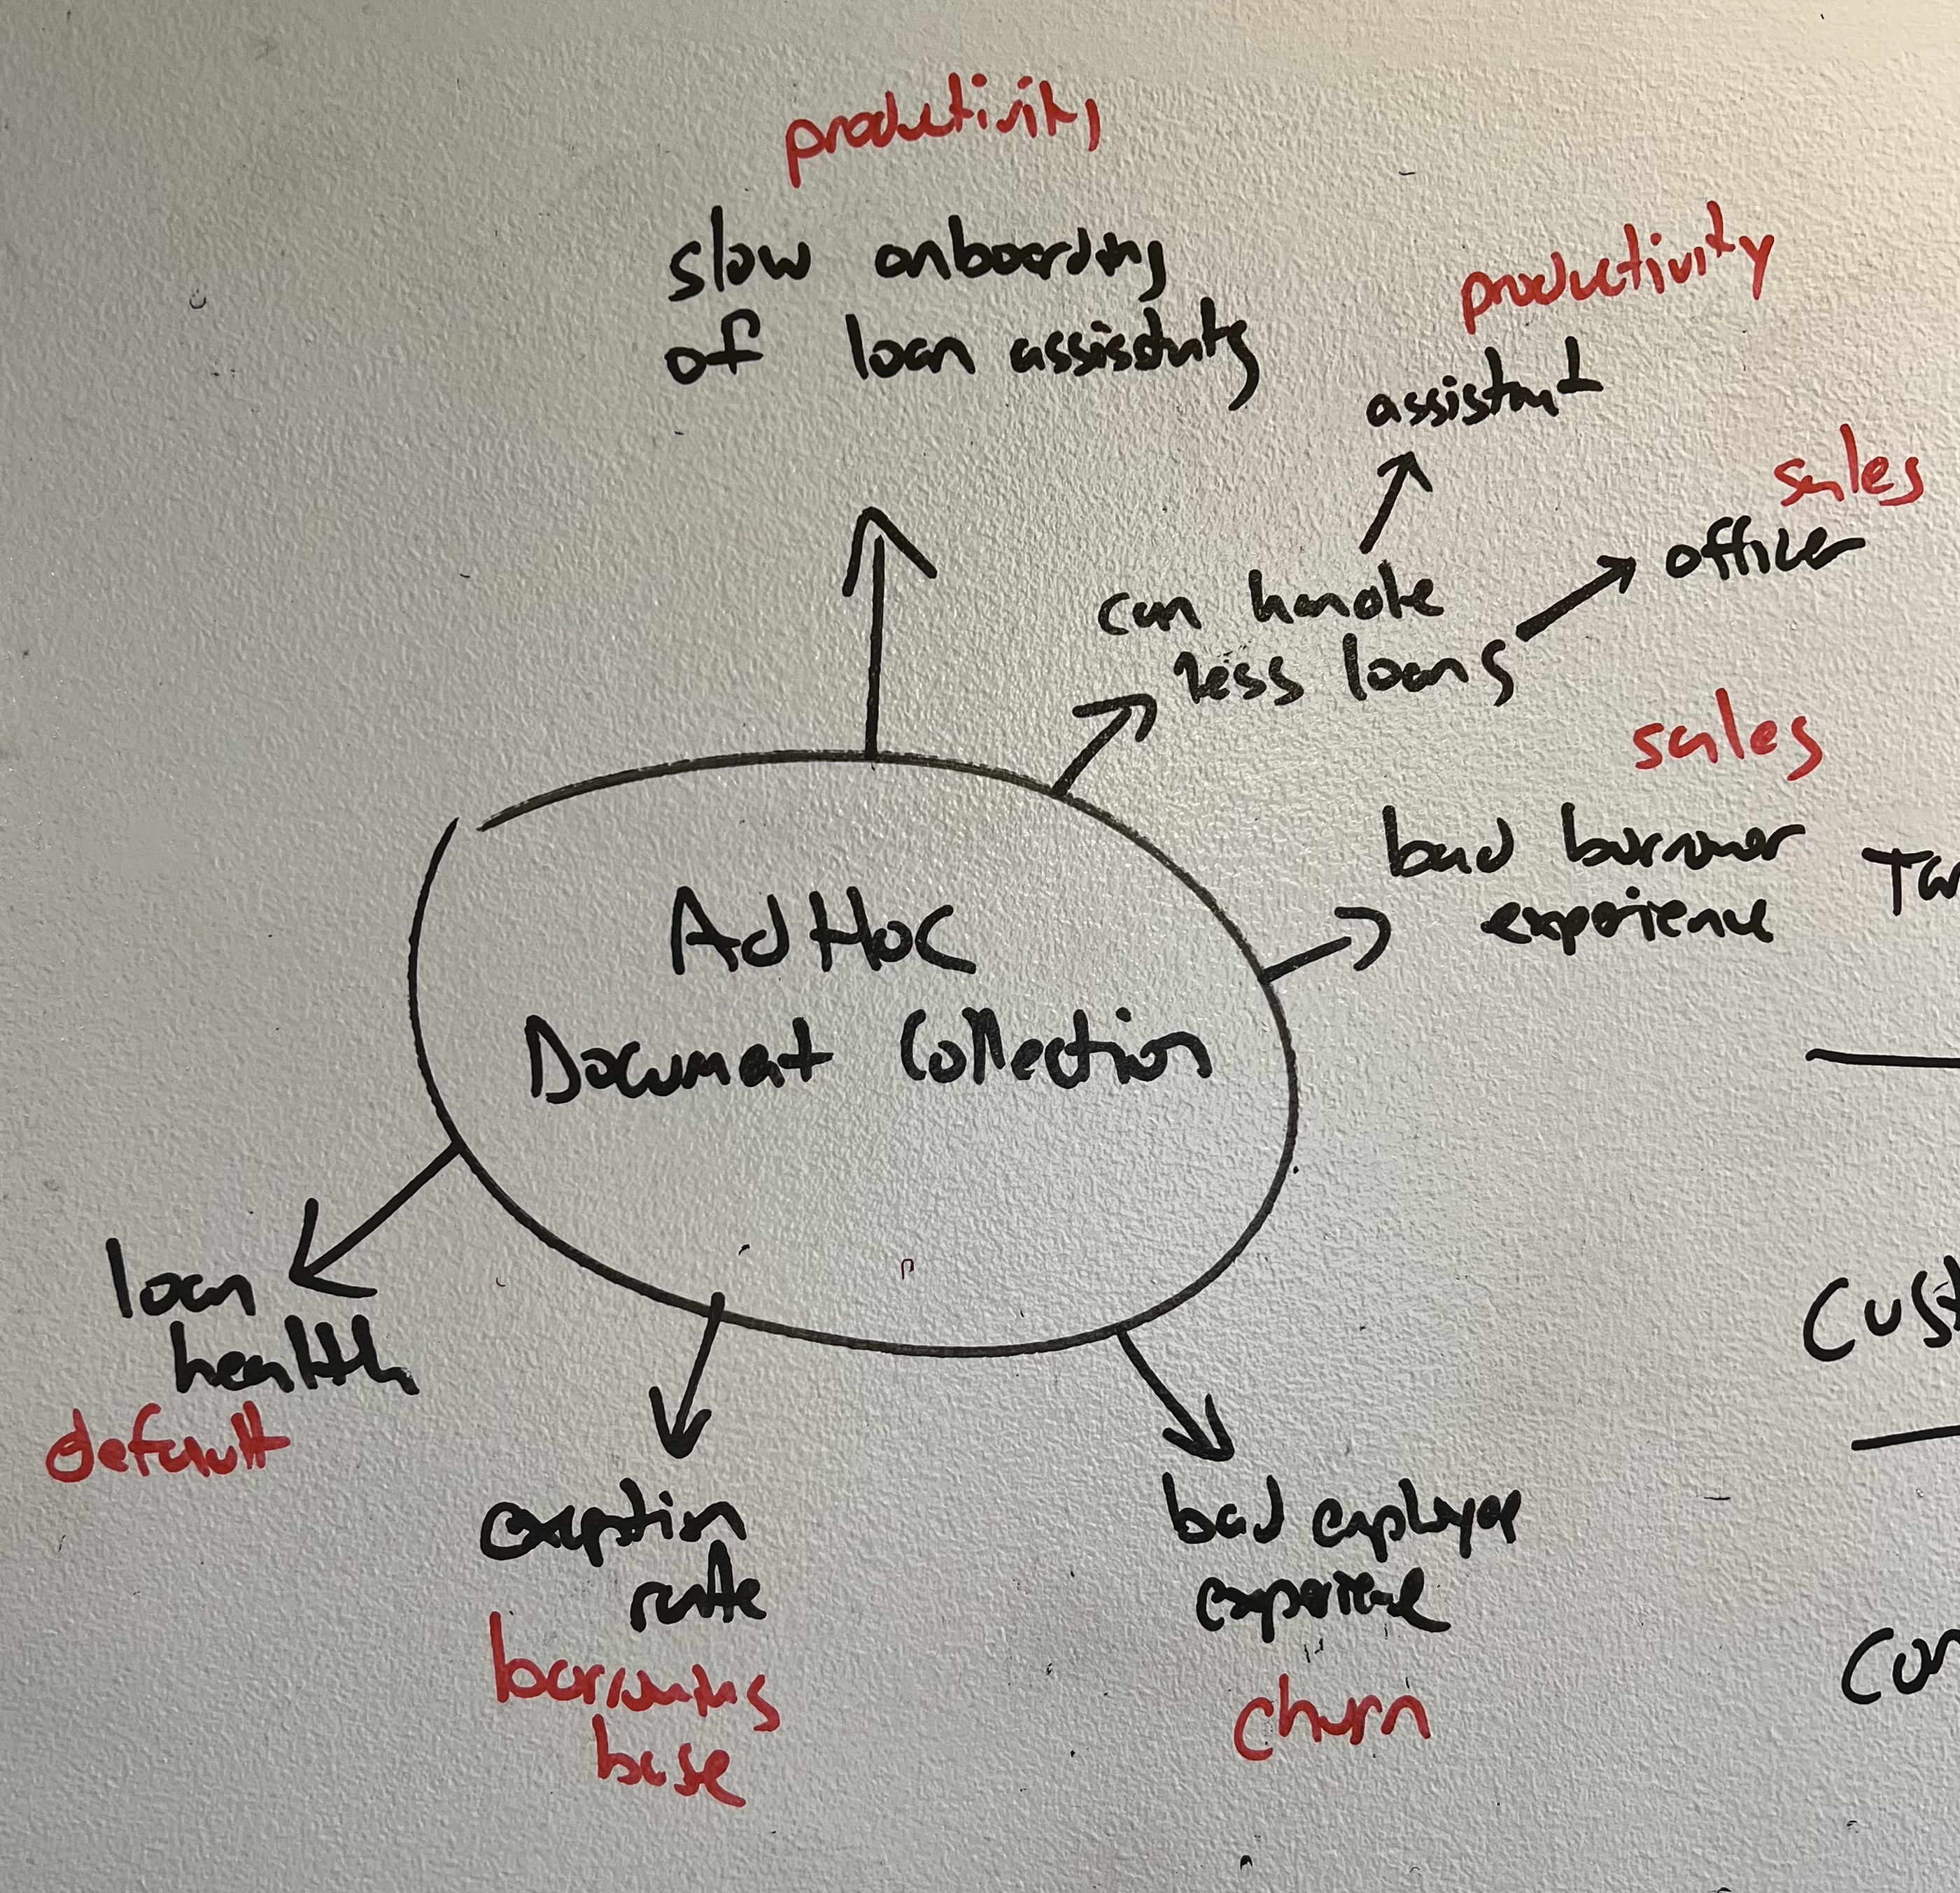 productivity
slow onboarding
of loan assistants
productivity
assistant
sales
officer
can handle
less loans
sales
bad borrower
experience
Ad Hoc
Document Collection
loan
health
default
exception
rate
borrowing
base
bad employee
experience
churn
Cust